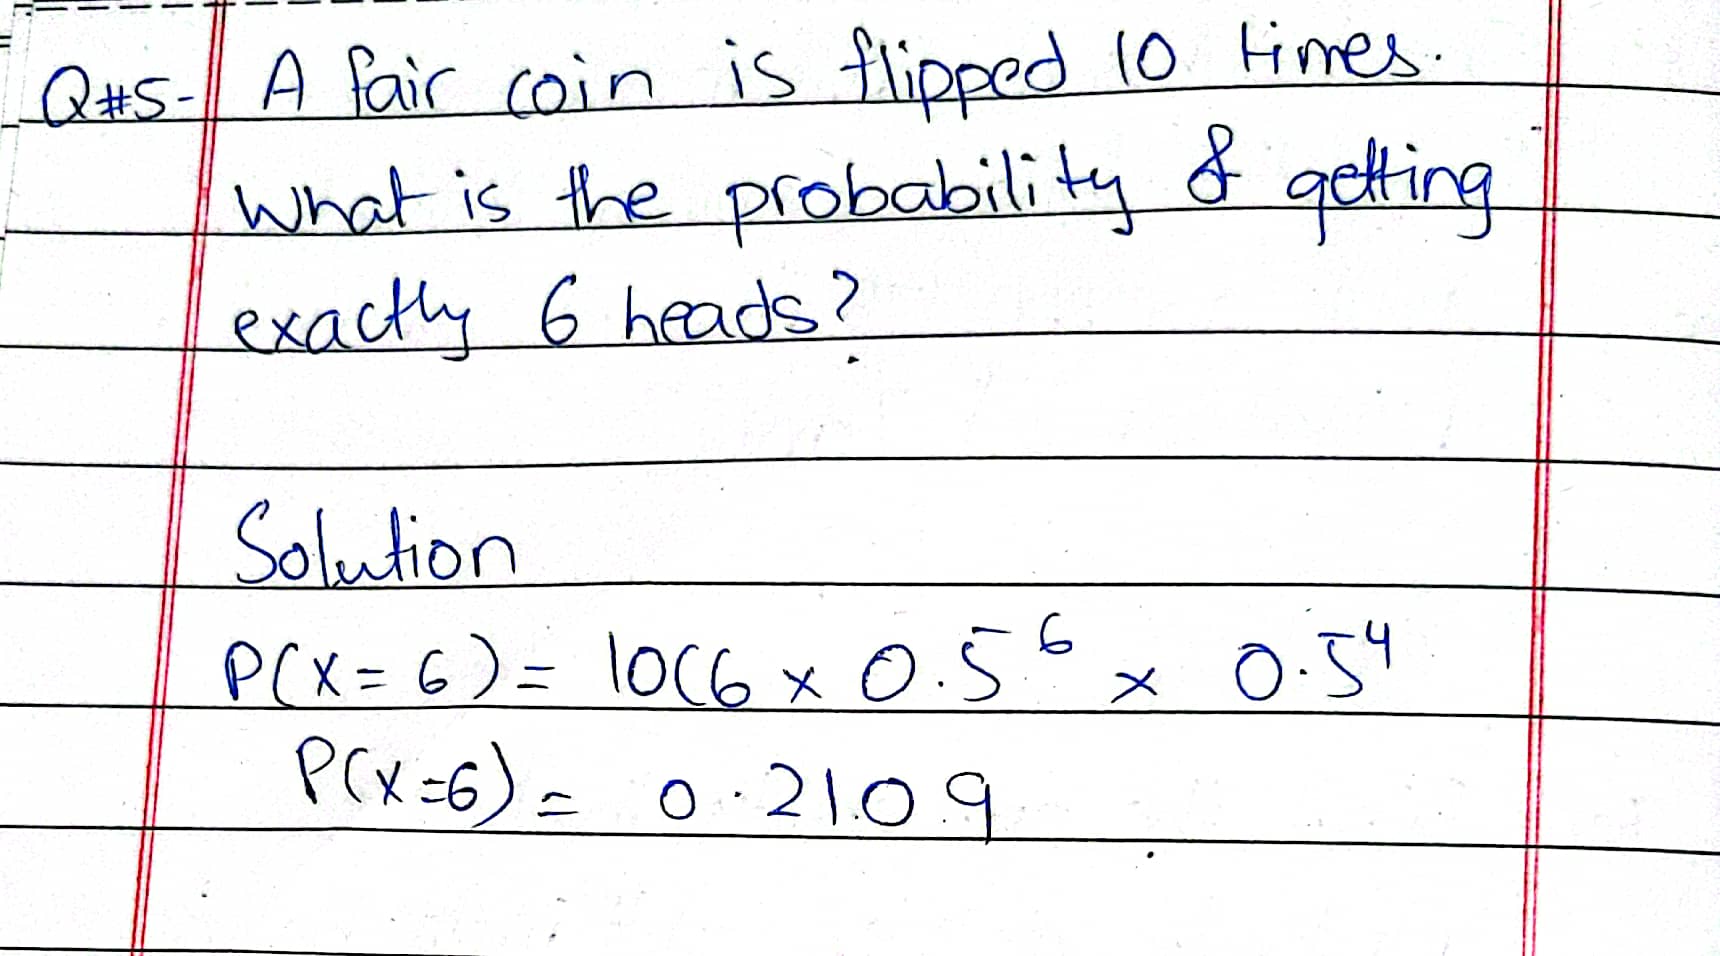 Q#5- A fair coin is flipped 10 times.
What is the probability of getting
exactly 6 heads?
Solution
P(X=6) = 10C6 x 0.5⁶ x 0.5⁴
P(X=6) = 0.2109